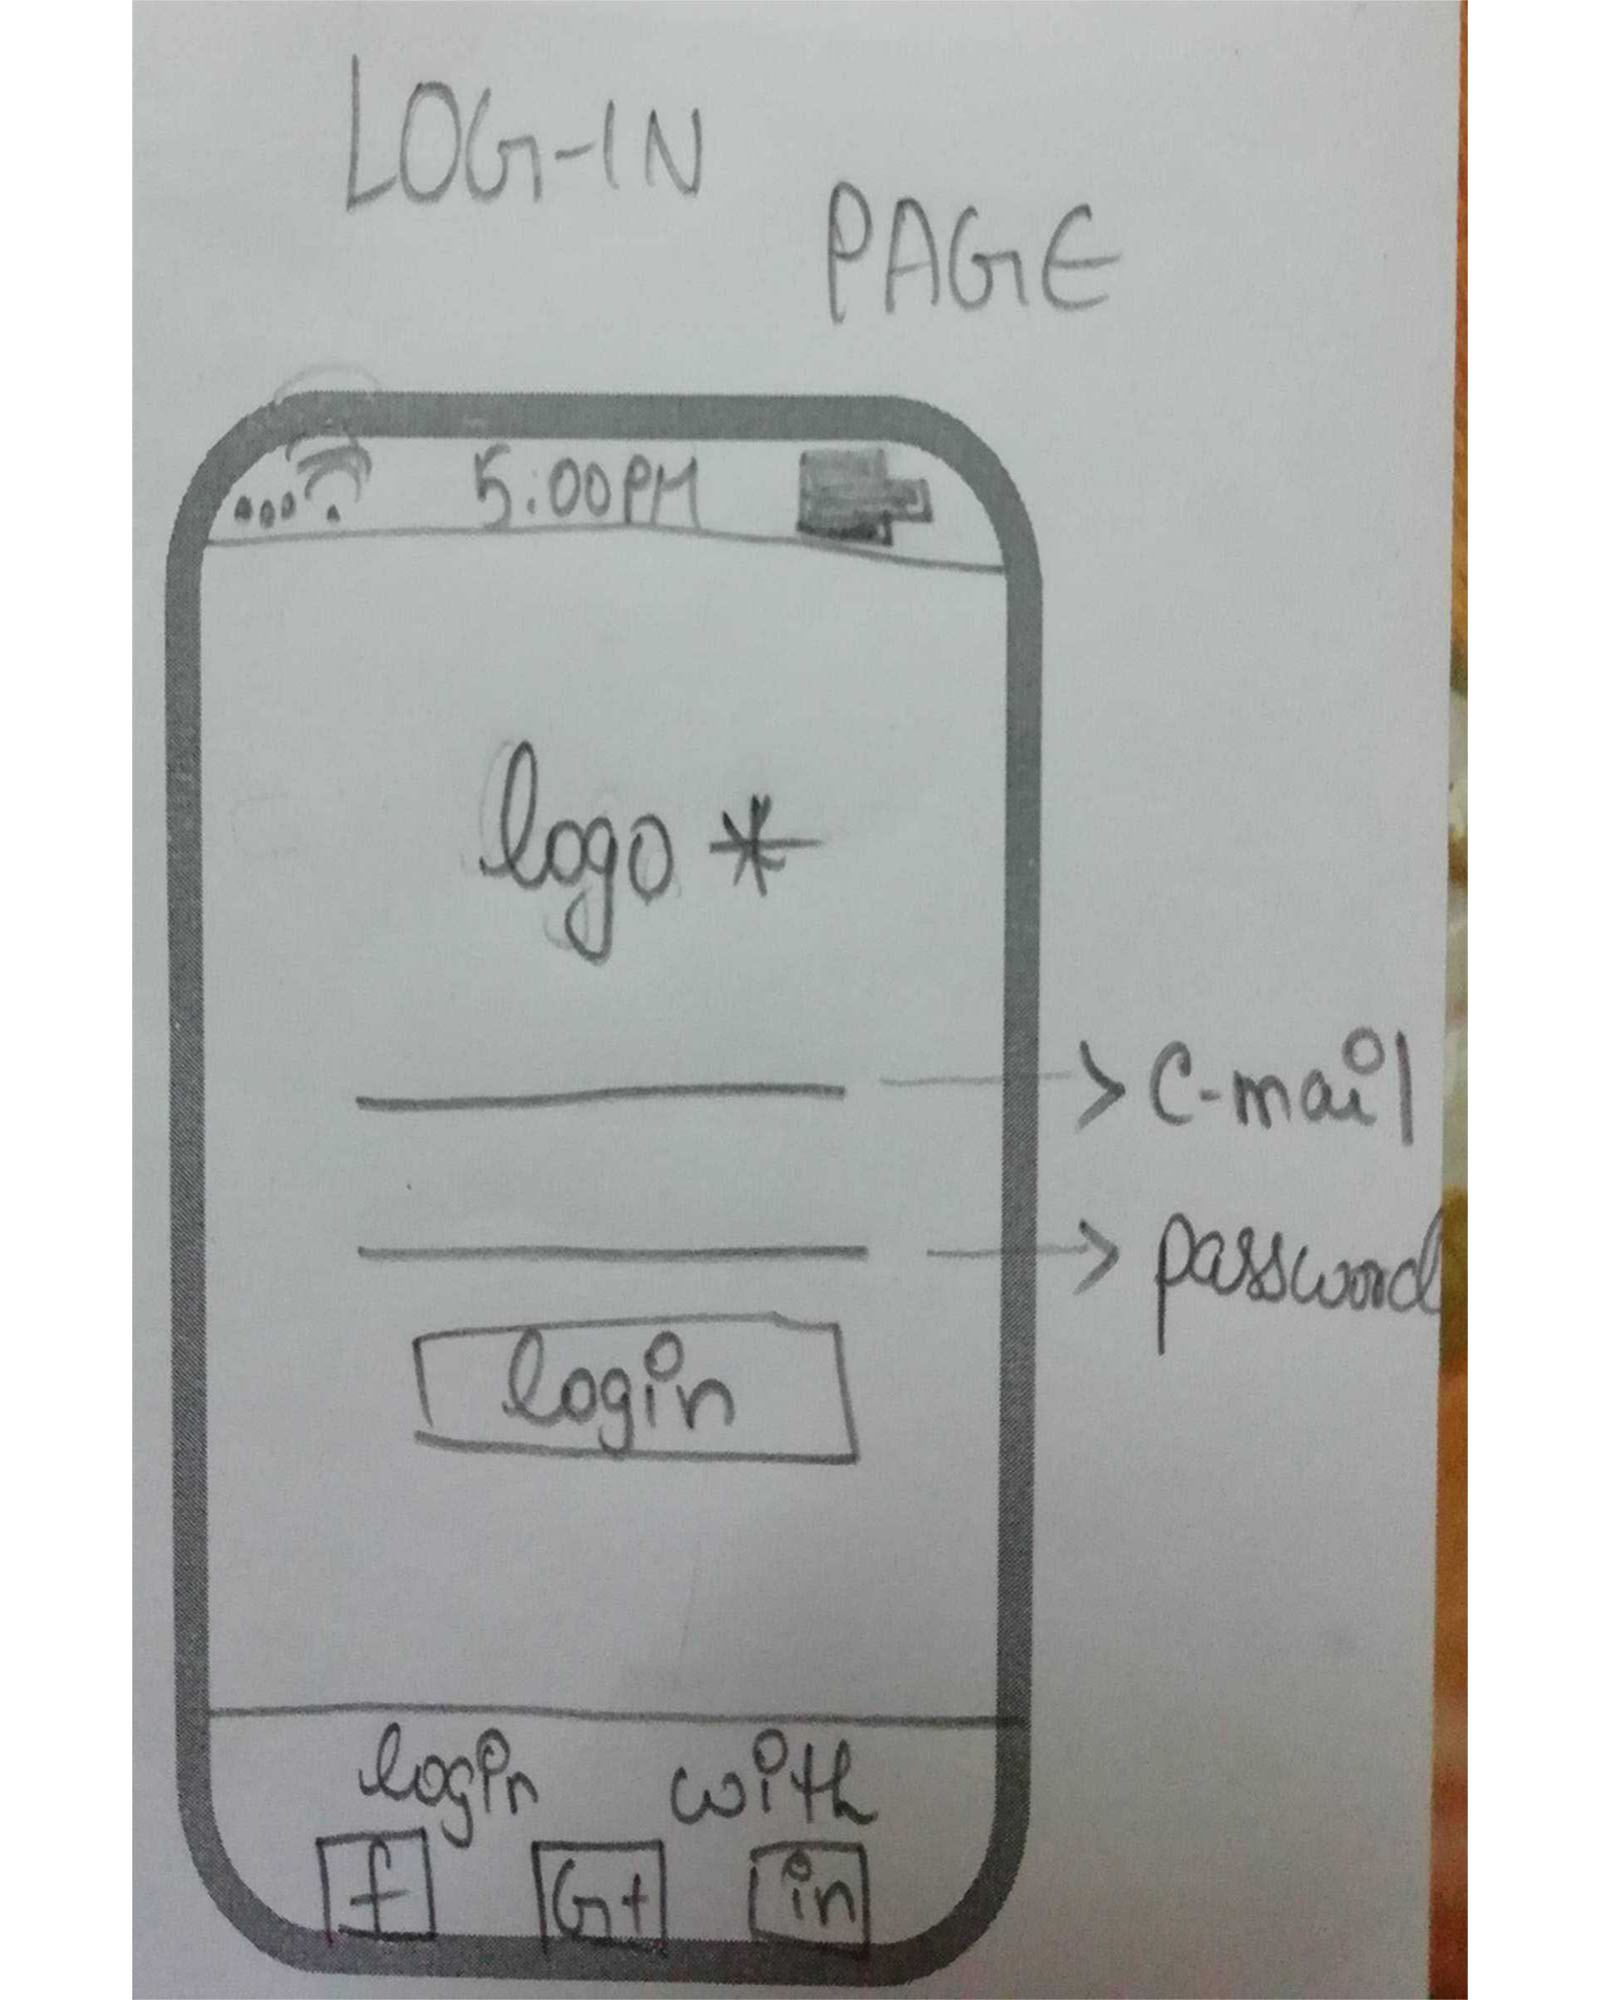 LOG-IN
PAGE
5:00PM
logo *
e-mail
password
login
login with
f G+ in